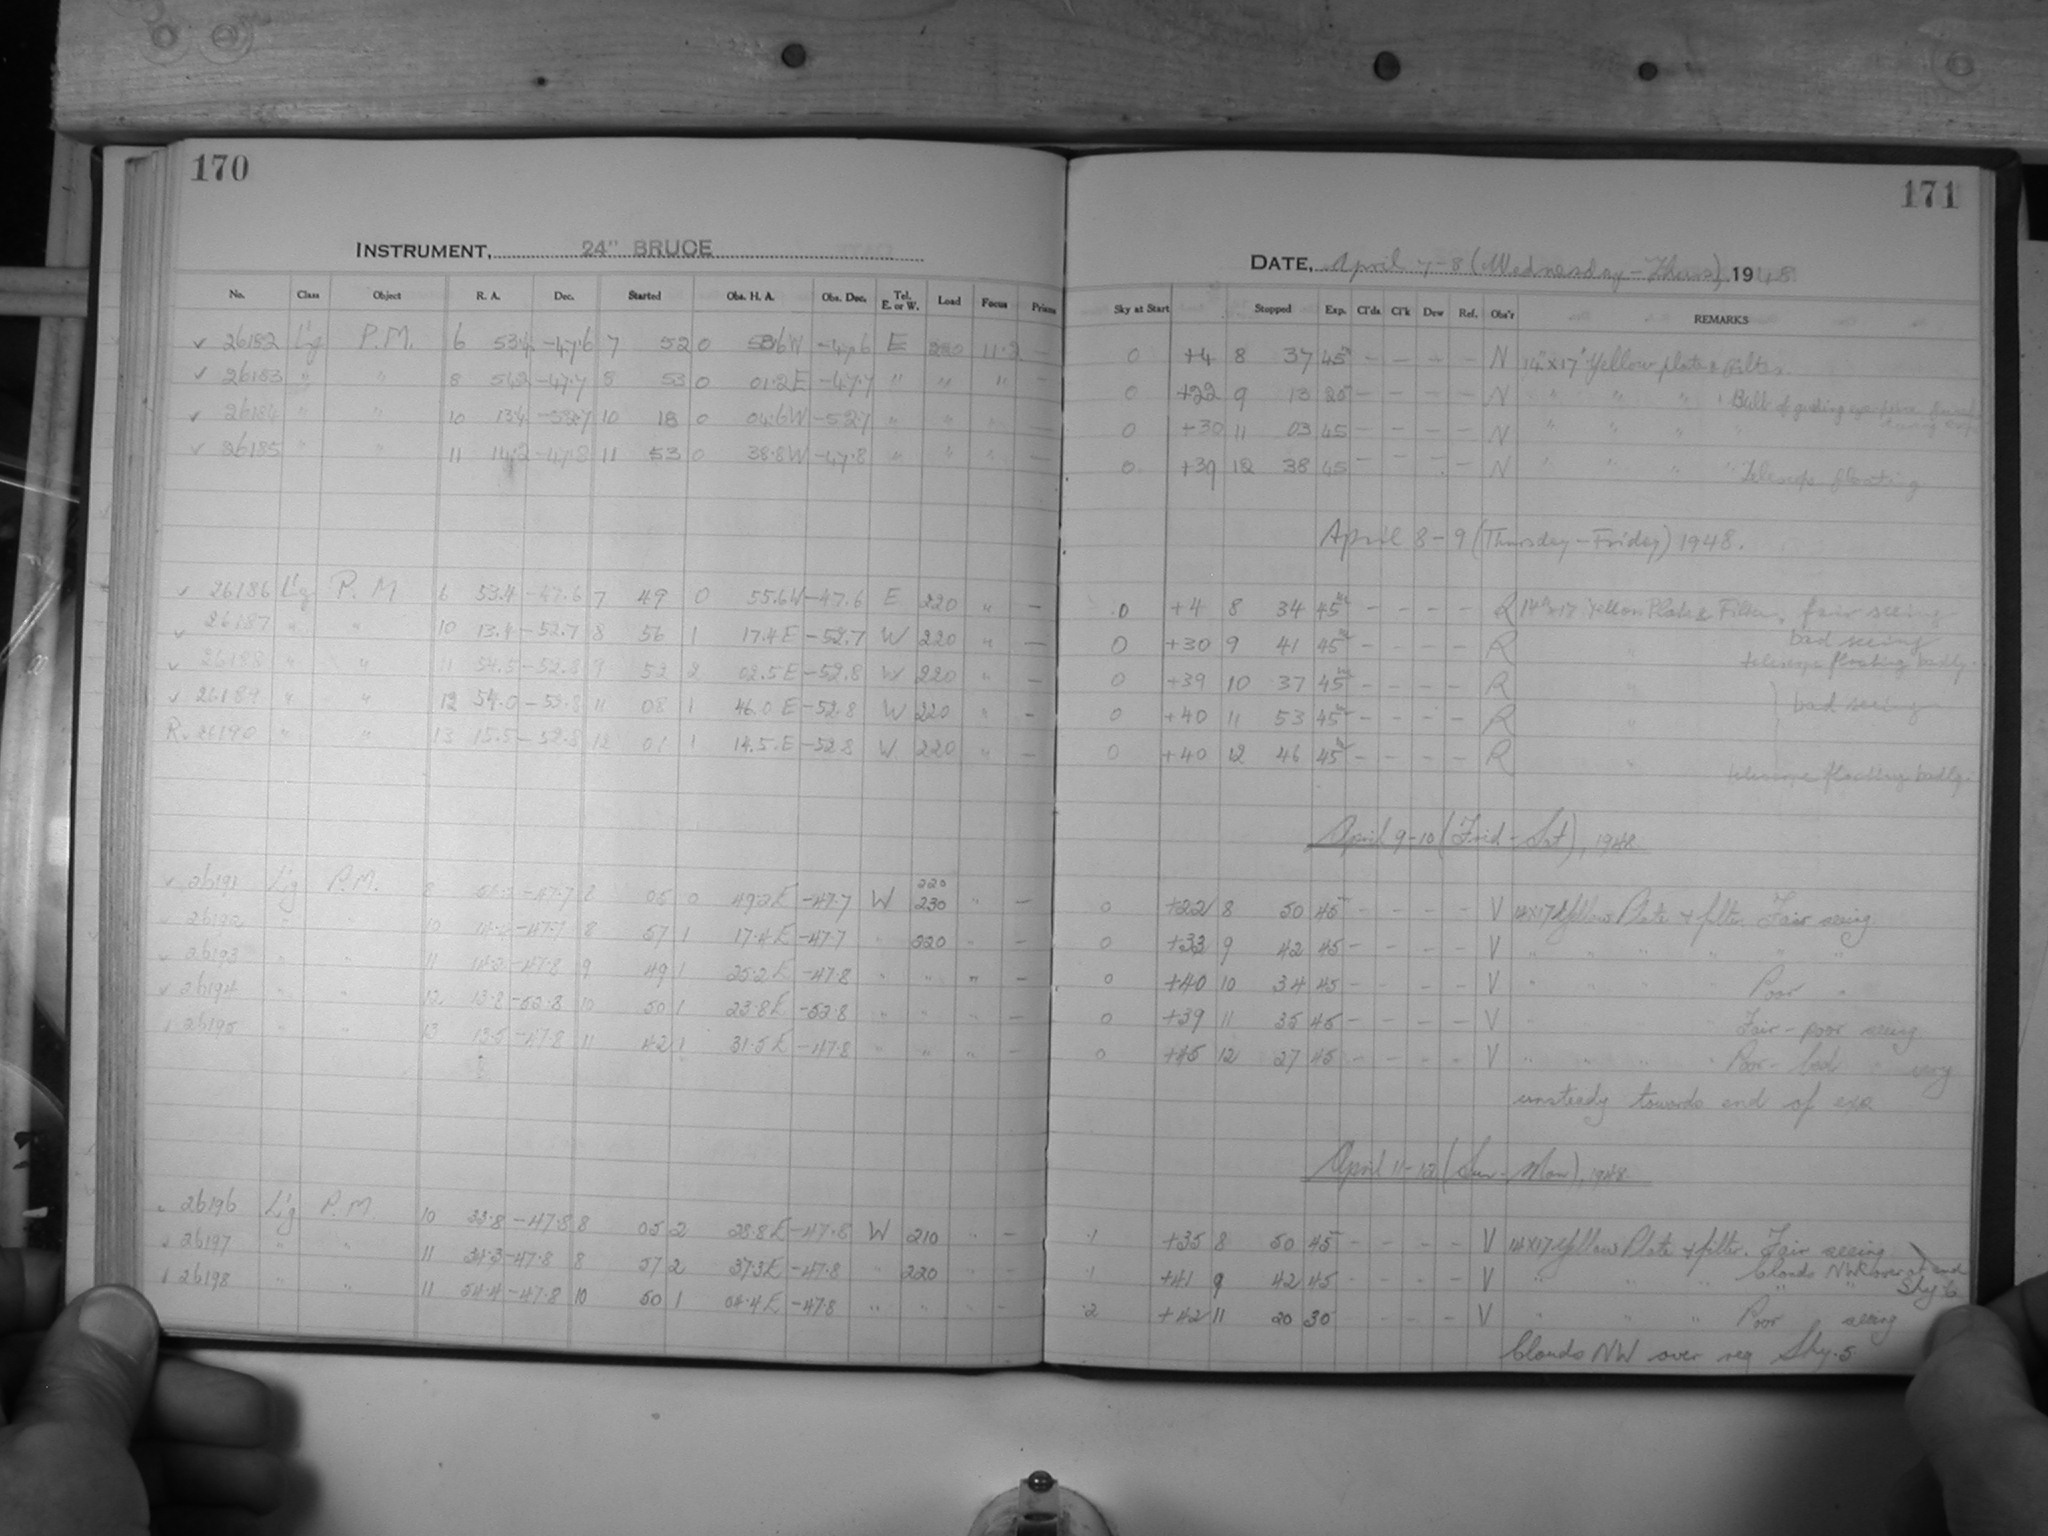 170
INSTRUMENT, 24" BRUCE
No. Class Object R. A. Dec. Started Obs. H. A. Obs. Dec. Tel. E. or W. Load Focus Prisms
26182 L'g P.M. 6 53.4 -47.6 7 52 0 58.6W -47.6 E 220 11.2 —
26183 " " 8 51.2 -47.7 8 53 0 01.2E -47.7 " " " —
26184 " " 10 13.4 -52.7 10 18 0 04.6W -52.7 " " " —
26185 " " 11 14.2 -47.8 11 53 0 38.8W -47.8 " " " —
26186 L'g P.M 6 53.4 -47.6 7 49 0 55.6W -47.6 E 220 " —
26187 " " 10 13.4 -52.7 8 56 1 17.4E -52.7 W 220 " —
26188 " " 11 54.5 -52.8 9 52 2 02.5E -52.8 W 220 " —
26189 " " 12 54.0 -52.8 11 08 1 46.0E -52.8 W 220 " —
R. 26190 " " 13 15.5 -52.8 12 01 1 14.5E -52.8 W 220 " —
220
26191 L'g P.M. 8 51.2 -47.7 8 05 0 49.2E -47.7 W 230 " —
26192 " " 10 14.4 -47.7 8 57 1 17.4E -47.7 " 220 " —
26193 " " 11 14.2 -47.8 9 49 1 25.2E -47.8 " " " —
26194 " " 12 13.8 -52.8 10 50 1 23.8E -52.8 " " " —
26195 " " 13 13.5 -47.8 11 42 1 31.5E -47.8 " " " —
26196 L'g P.M. 10 33.8 -47.8 8 05 2 28.8E -47.8 W 210 " —
26197 " " 11 34.3 -47.8 8 57 2 37.3E -47.8 " 220 " —
26198 " " 11 54.4 -47.8 10 50 1 04.4E -47.8 " " " —
171
DATE, April 7-8 (Wednesday-Thurs) 1948
Sky at Start Stopped Exp. Cl'ds Cl'k Dew Ref. Obs'r REMARKS
0 +4 8 37 45m — — — — N 14"x17" Yellow plate & filter.
0 +22 9 13 20 — — — — N " " " Bulb of guiding eye piece
0 +30 11 03 45 — — — — N " " "
0 +39 12 38 45 — — — — N " " " Telescope floating
April 8-9 (Thursday-Friday) 1948.
0 +4 8 34 45m — — — — R 14"x17" Yellow Plate & Filter, fair seeing
0 +30 9 41 45m — — — — R " bad seeing
telescope floating badly.
0 +39 10 37 45m — — — — R "
0 +40 11 53 45m — — — — R " bad seeing
0 +40 12 46 45m — — — — R "
telescope floating badly.
April 9-10 (Frid-Sat), 1948
0 +22 8 50 45m — — — — V 14x17 Yellow Plate & filter. Fair seeing
0 +33 9 42 45 — — — — V " " " " " "
0 +40 10 34 45 — — — — V " " " " Poor "
0 +39 11 35 45 — — — — V " " " " Fair-poor seeing
0 +45 12 27 45 — — — — V " " " " Poor-bad " very
unsteady towards end of exp
April 11-12 (Sun-Mon), 1948.
.1 +35 8 50 45m — — — — V 14x17 Yellow Plate & filter. Fair seeing
.1 +41 9 42 45 — — — — V " " " Clouds NW over at end
Sky 6
.2 +42 11 20 30 — — — — V " " " Poor seeing
Clouds NW over reg Sky.5